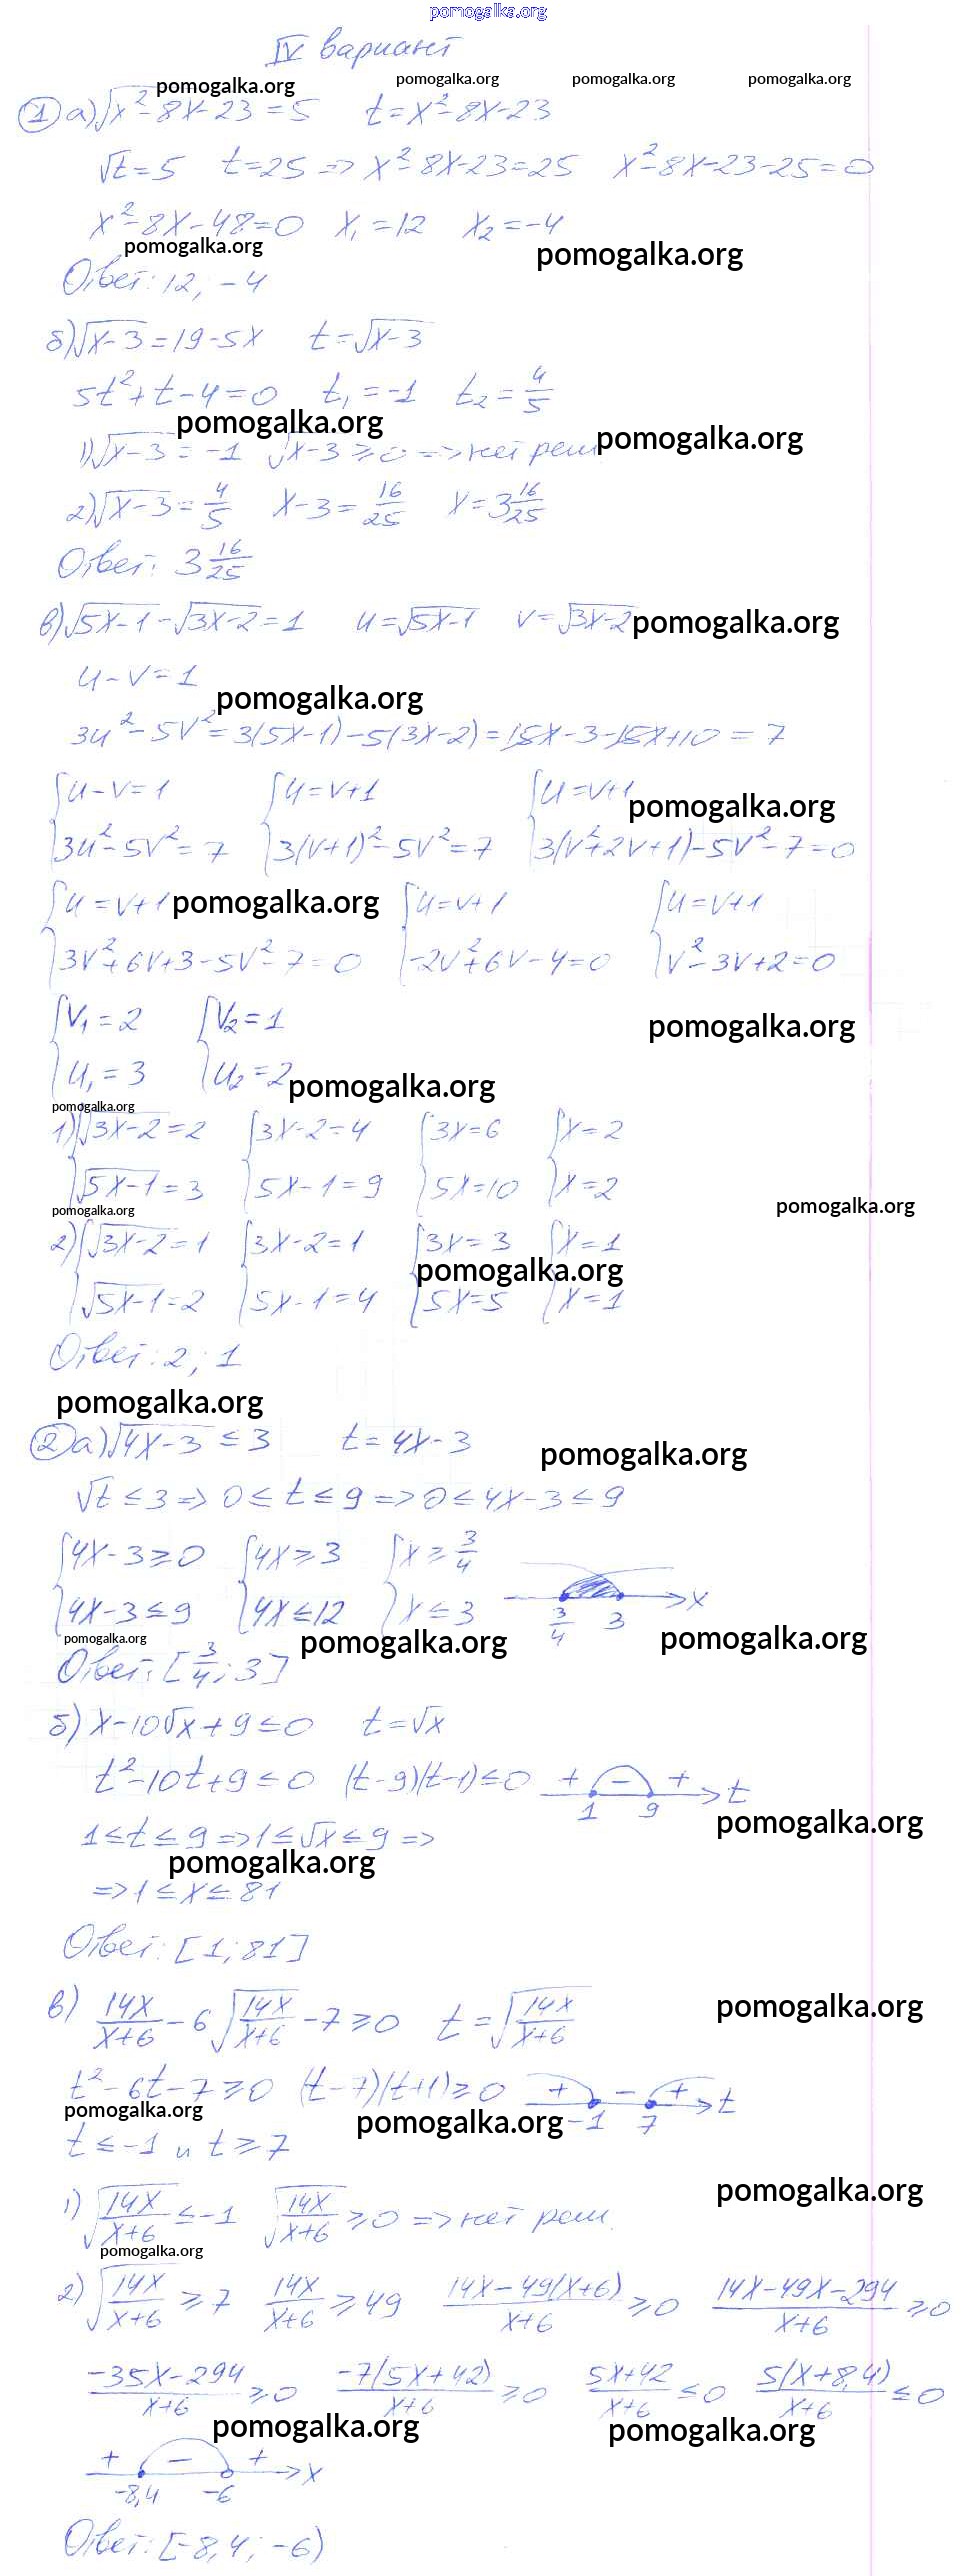 pomogalka.org
IV вариант
pomogalka.org pomogalka.org pomogalka.org pomogalka.org
① а) √(x²-8x-23) = 5   t = x²-8x-23
√t = 5   t = 25 => x²-8x-23 = 25   x²-8x-23-25 = 0
x²-8x-48 = 0   x₁ = 12   x₂ = -4
pomogalka.org pomogalka.org
Ответ: 12; -4
б) √(x-3) = 19-5x   t = √(x-3)
5t²+t-4 = 0   t₁ = -1   t₂ = 4/5
pomogalka.org pomogalka.org
1) √(x-3) = -1   √(x-3) ≥ 0 => нет реш
2) √(x-3) = 4/5   x-3 = 16/25   x = 3 16/25
Ответ: 3 16/25
в) √(5x-1) - √(3x-2) = 1   u = √(5x-1)   v = √(3x-2) pomogalka.org
u-v = 1
pomogalka.org
3u²-5v² = 3(5x-1)-5(3x-2) = 15x-3-15x+10 = 7
{u-v = 1   {u = v+1   {u = v+1 pomogalka.org
{3u²-5v² = 7   {3(v+1)²-5v² = 7   {3(v²+2v+1)-5v²-7 = 0
{u = v+1 pomogalka.org {u = v+1   {u = v+1
{3v²+6v+3-5v²-7 = 0   {-2v²+6v-4 = 0   {v²-3v+2 = 0
{v₁ = 2   {v₂ = 1 pomogalka.org
{u₁ = 3   {u₂ = 2 pomogalka.org
pomogalka.org
1) {√(3x-2) = 2   {3x-2 = 4   {3x = 6   {x = 2
{√(5x-1) = 3   {5x-1 = 9   {5x = 10   {x = 2
pomogalka.org pomogalka.org
2) {√(3x-2) = 1   {3x-2 = 1   {3x = 3   {x = 1
pomogalka.org
{√(5x-1) = 2   {5x-1 = 4   {5x = 5   {x = 1
Ответ: 2; 1
pomogalka.org
② а) √(4x-3) ≤ 3   t = 4x-3 pomogalka.org
√t ≤ 3 => 0 ≤ t ≤ 9 => 0 ≤ 4x-3 ≤ 9
{4x-3 ≥ 0   {4x ≥ 3   {x ≥ 3/4
{4x-3 ≤ 9   {4x ≤ 12   {x ≤ 3   3/4   3   x
pomogalka.org pomogalka.org pomogalka.org
Ответ: [3/4; 3]
б) x-10√x+9 ≤ 0   t = √x
t²-10t+9 ≤ 0   (t-9)(t-1) ≤ 0   + - + t
1   9
pomogalka.org
1 ≤ t ≤ 9 => 1 ≤ √x ≤ 9 =>
pomogalka.org
=> 1 ≤ x ≤ 81
Ответ: [1; 81]
в) 14x/(x+6) - 6√(14x/(x+6)) - 7 ≥ 0   t = √(14x/(x+6)) pomogalka.org
t²-6t-7 ≥ 0   (t-7)(t+1) ≥ 0   + - + t
pomogalka.org pomogalka.org -1   7
t ≤ -1 и t ≥ 7
pomogalka.org
1) √(14x/(x+6)) ≤ -1   √(14x/(x+6)) ≥ 0 => нет реш.
pomogalka.org
2) √(14x/(x+6)) ≥ 7   14x/(x+6) ≥ 49   (14x-49(x+6))/(x+6) ≥ 0   (14x-49x-294)/(x+6) ≥ 0
(-35x-294)/(x+6) ≥ 0   -7(5x+42)/(x+6) ≥ 0   (5x+42)/(x+6) ≤ 0   5(x+8,4)/(x+6) ≤ 0
pomogalka.org pomogalka.org
+ - + x
-8,4   -6
Ответ: [-8,4; -6)